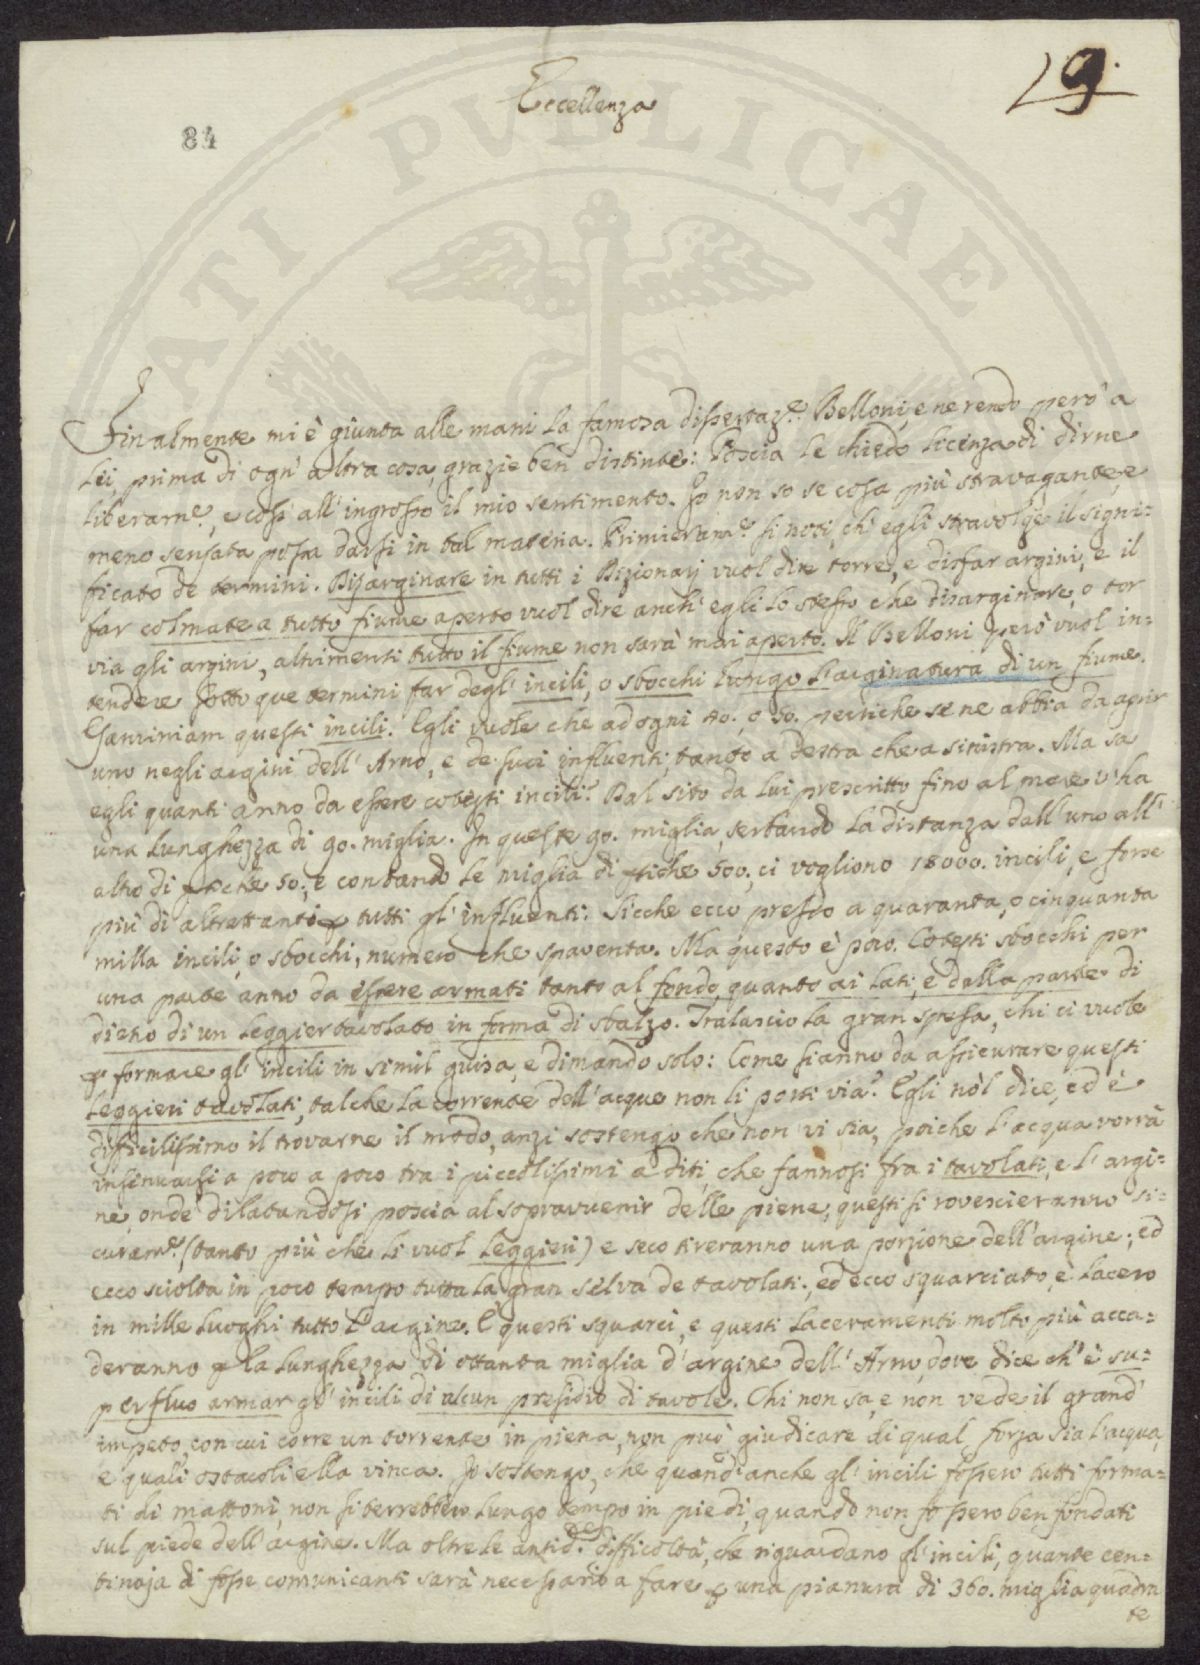 9.
Eccellenza
84
Finalmente mi è giunta alle mani la famosa dissertaz.e Belloni, e ne rendo però a
Lei, prima di ogn' altra cosa, grazie ben distinte: Poscia Le chiedo licenza di dirne
liberam.e, e così all' ingrosso il mio sentimento. Io non so se cosa più stravagante, e
meno sensata possa darsi in tal materia. Primieram.e si noti, ch' egli stravolge il signi=
ficato de termini. Disarginare in tutti i Dizionarj vuol dire torre, e disfar argini, e il
far colmate a tutto fiume aperto vuol dire anch' egli lo stesso che disarginare, o tor
via gli argini, altrimenti tutto il fiume non sarà mai aperto. Il Belloni però vuol in=
tendere sotto que termini far degl' incili, o sbocchi lungo l'arginatura di un fiume.
Esaminiam questi incili. Egli vuole che ad ogni 40. o 50. pertiche se ne abbia da aprir
uno negli argini dell' Arno, e de suoi influenti, tanto a destra che a sinistra. Ma sa
egli quanti anno da essere cotesti incili? Dal sito da lui prescritto fino al mare v'ha
una lunghezza di 90. miglia. In queste 90. miglia, serbando la distanza dall' uno all'
altro di ptiche 50; e contando le miglia di ptiche 500, ci vogliono 18000. incili, e forse
più di altrettanti p tutti gl' influenti: Sicche ecco presso a quaranta, o cinquanta
milla incili, o sbocchi, numero che spaventa. Ma questo è poco. Cotesti sbocchi per
una parte anno da essere armati tanto al fondo, quanto ai lati, e dalla parte di
dietro di un leggier tavolato in forma di sbalzo. Tralascio la gran spesa, chi ci vuole
p formare gl' incili in simil guisa, e dimando solo: Come s'anno da assicurare questi
leggieri tavolati, talche la corrente dell' acque non li porti via? Egli nol dice, ed è
difficilissimo il trovarne il modo, anzi sostengo che non vi sia, poiche l'acqua vorrà
insinuarsi a poco a poco tra i piccolissimi aditi, che fannosi fra i tavolati, e l'argi=
ne, onde dilatandosi poscia al sopravvenir delle piene, questi si rovescieranno si=
curam.e (tanto più che li vuol leggieri) e seco tireranno una porzione dell'argine; ed
ecco sciolta in poco tempo tutta la gran selva de tavolati; ed ecco squarciato, e lacero
in mille luoghi tutto l'argine. E questi squarci, e questi laceramenti molto più acca=
deranno p la lunghezza di ottanta miglia d'argine dell' Arno, dove dice ch' è su=
perfluo armar gl' incili di alcun presidio di tavole. Chi non sa, e non vede il grand'
impeto, con cui corre un torrente in piena, non può giudicare di qual forza sia l'acqua,
e quali ostacoli ella vinca. Io sostengo, che quand' anche gl' incili fossero tutti forma=
ti di mattoni, non si terrebbero lungo tempo in piedi, quando non fossero ben fondati
sul piede dell' argine. Ma oltre le antid.e difficoltà, che riguardano gl' incili, quante cen=
tinaja di fosse comunicanti sarà necessario a fare p una pianura di 360. miglia quadra
te